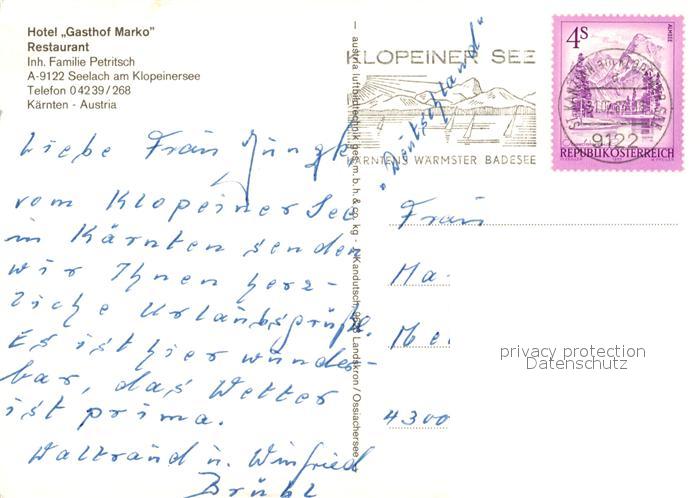 Hotel „Gasthof Marko"
Restaurant
Inh. Familie Petritsch
A-9122 Seelach am Klopeinersee
Telefon 0 42 39 / 268
Kärnten - Austria
Liebe Frau Jungk,
vom Klopeiner See
in Kärnten senden
wir Ihnen herz-
liche Urlaubsgrüße.
Es ist hier wunder-
bar, das Wetter
ist prima.
Waltraud u. Winfried
Brühl
— austria luftbildtechnik ges. m. b. h. & co. kg - Kandutsch Landskron / Ossiachersee
KLOPEINER SEE
KÄRNTENS WÄRMSTER BADESEE
„Deutschland"
4S
ALMSEE
9122
REPUBLIK ÖSTERREICH
Frau
Ma
Me
4300
privacy protection
Datenschutz